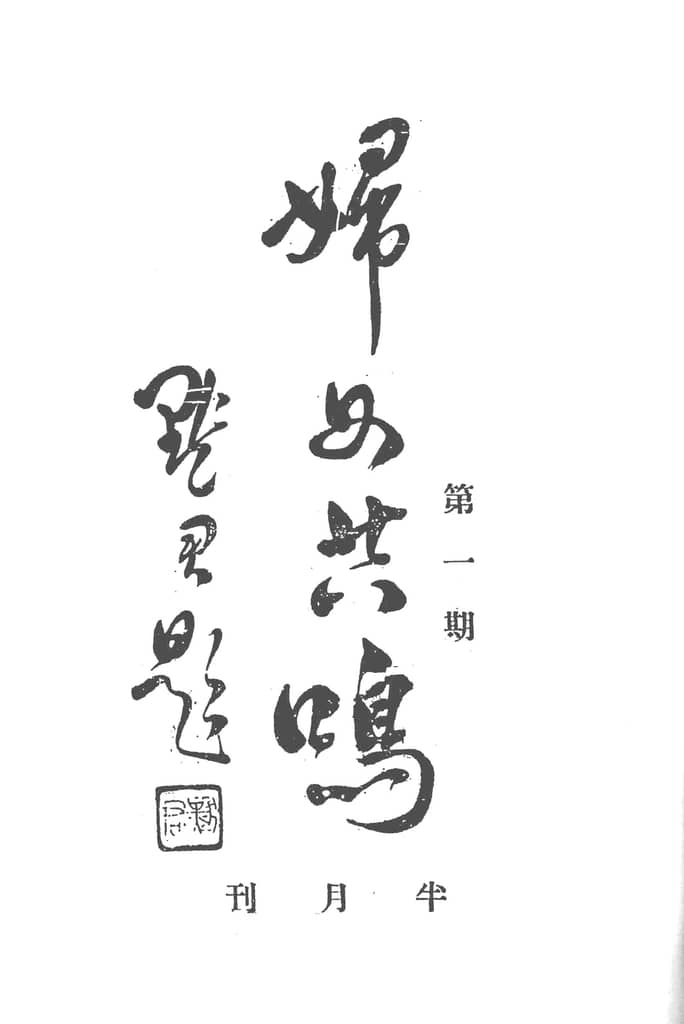 第一期
婦女共鳴
默君題
半月刊